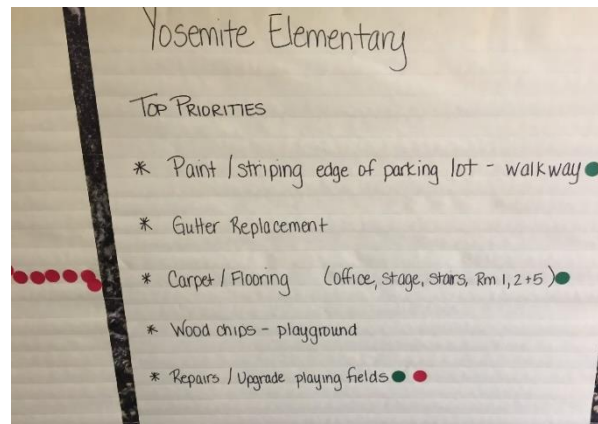 Yosemite Elementary
TOP PRIORITIES
* Paint / striping edge of parking lot - walkway
* Gutter Replacement
* Carpet / Flooring (office, stage, stairs, Rm 1, 2 + 5)
* Wood chips - playground
* Repairs / Upgrade playing fields